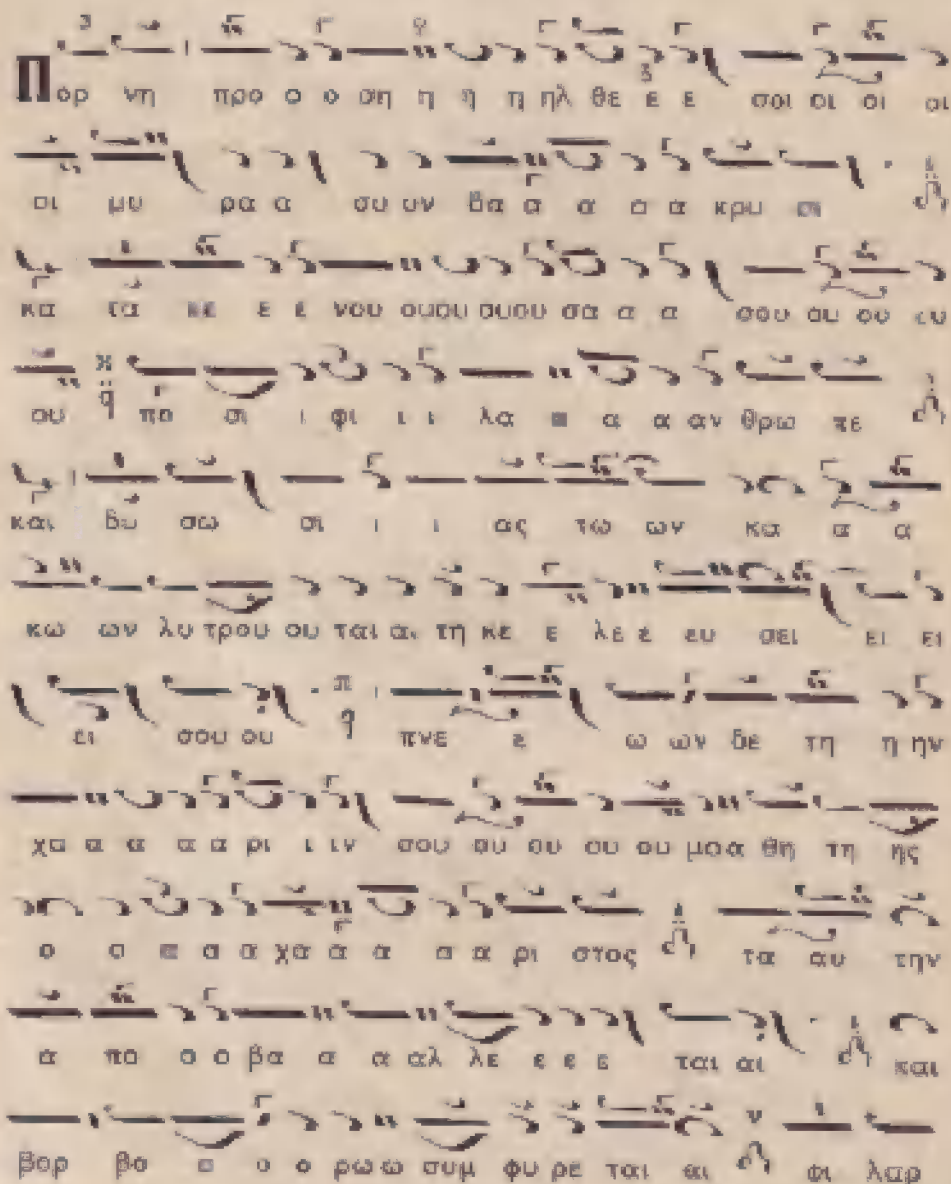 Πόρ νη προ ο ο ση η η η ηλ θε ε ε σοι οι οι οι
οι μυ ρα α συ υν δα α α α α κρυ σι
κα τα κε ε ε νου ουου ουου σα α α σου ου ου ευ
ου πο σι ι φι ι ι λα α α α αν θρω πε
και δυ σω σι ι ι ας τω ων κα α α
κω ων λυ τρου ου ται αι τη κε ε λε ε ευ σει ει ει
ει σου ου π q πνε ε ω ων δε τη η ην
χα α α α α ρι ι ιν σου ου ου ου ου μοα θη τη ης
ο ο α α α χα α α α α ρι στος τα αυ την
α πο ο ο βα α α αλ λε ε ε ε ται αι και
βορ βο ο ο ο ρω ω συμ φυ ρε ται αι φι λαρ